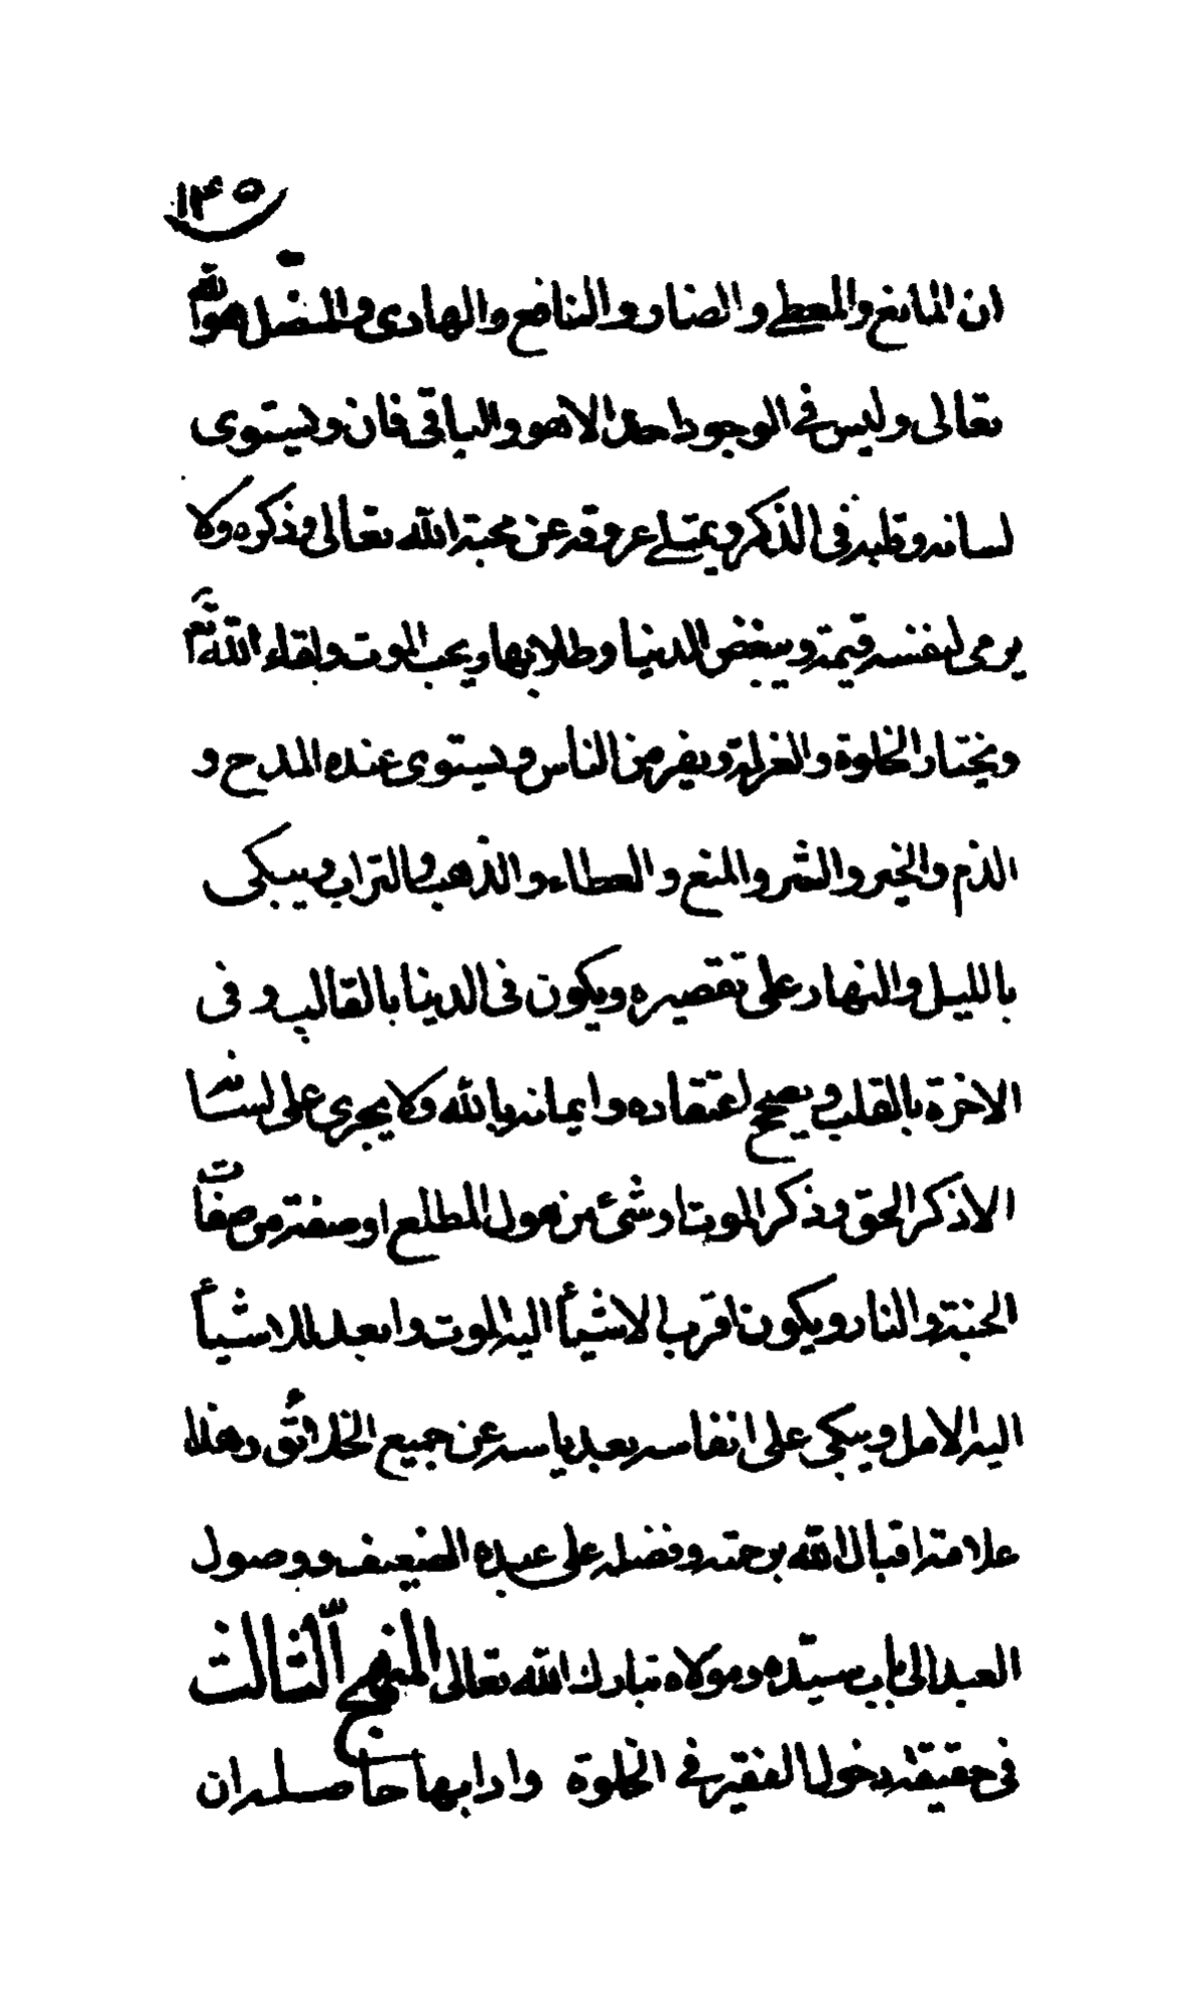 ١٣٥
ان المانع والمعطي والضار والنافع والهادى والمضل هو الله
تعالى وليس في الوجود احد الا هو والباقى فان ويستوى
لسانه وقلبه فى الذكر ويمتلى عروقه عن محبة الله تعالى وذكره ولا
يرمى لنفسه قيمة ويبغض الدنيا وطلابها ويحب الموت ولقاء الله
ويختار الخلوة والعزلة ويفر من الناس ويستوى عنده المدح و
الذم والخير والشر والمنع والعطاء والذهب والتراب ويبكى
بالليل والنهار على تقصيره ويكون فى الدنيا بالقالب وفى
الاخرة بالقلب ويصح اعتقاده وايمانه بالله ولا يجرى على لسانه
الا ذكر الحق وذكر الموت او شئ من هول المطلع او صفة من صفات
الجنة والنار ويكون اقرب الاشيأ اليه الموت وابعد الاشيأ
اليه الامل ويبكى على انفاسه بعد ياسه عن جميع الخلائق وهذا
علامة اقبال الله برحمته وفضله على عبده الضعيف ووصول
العبد الى باب سيّده ومولاه تبارك الله تعالى المنهج الثالث
فى حقيقة دخول الفقير في الخلوة وادابها حاصله ان